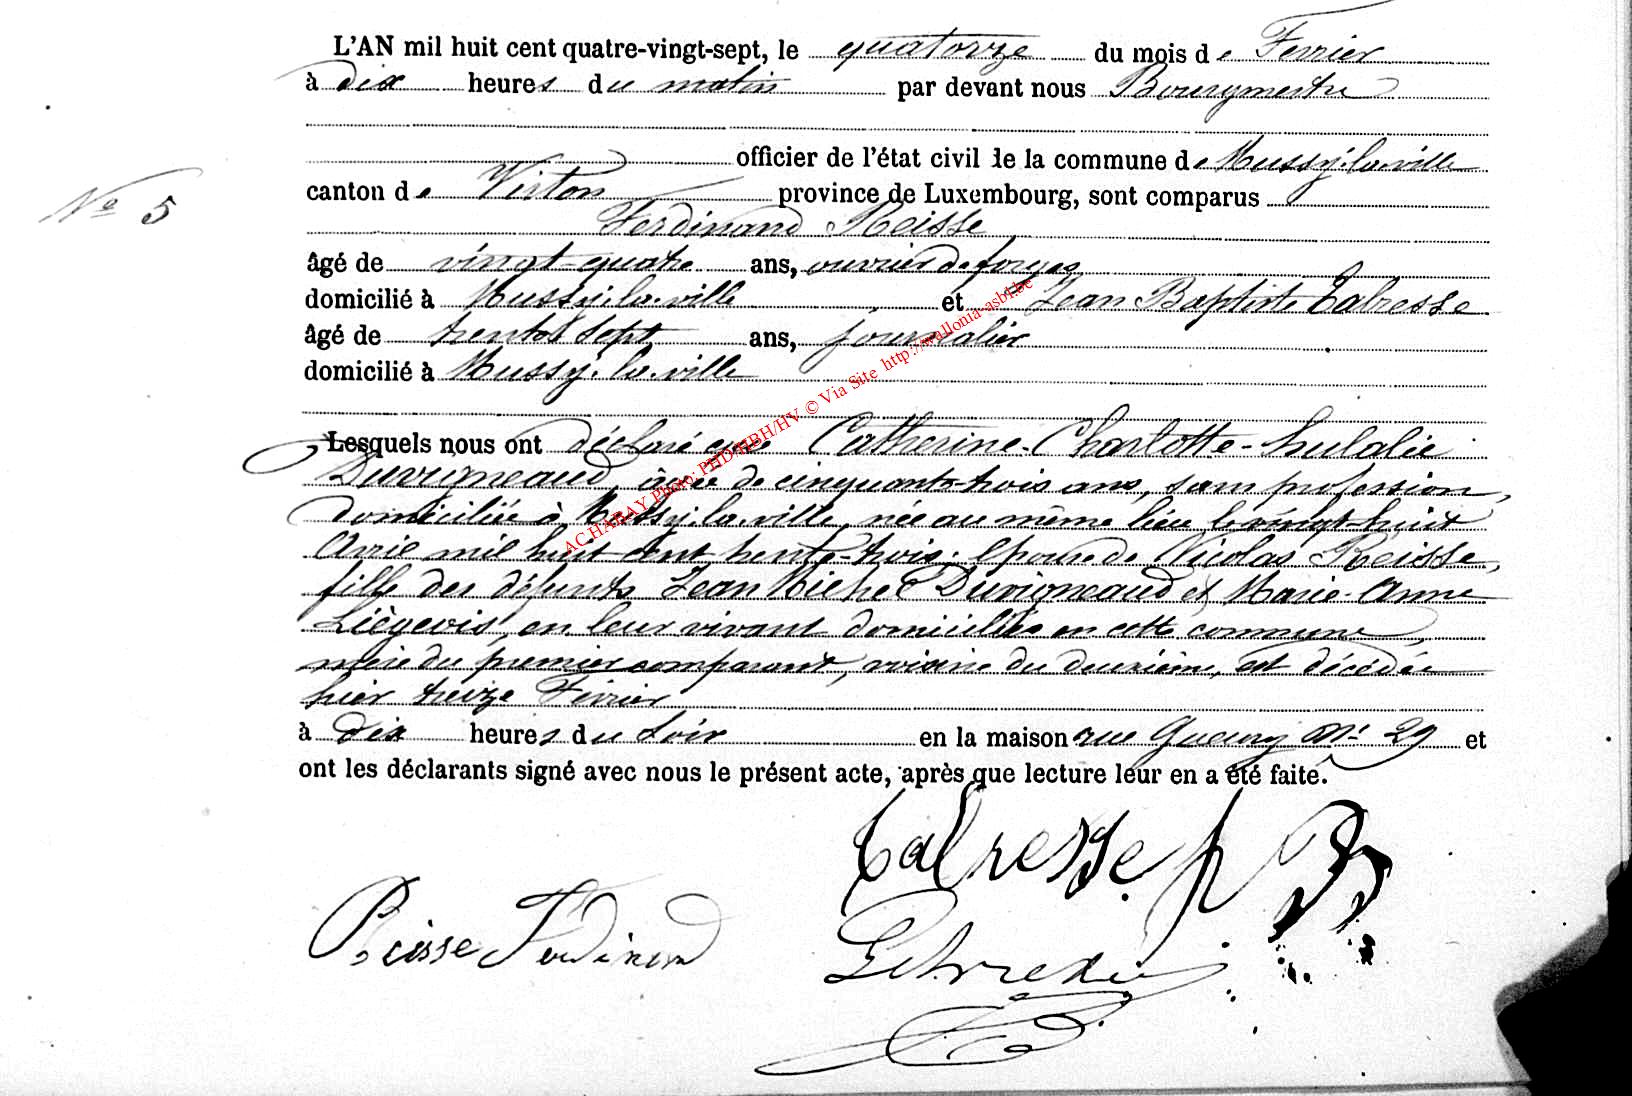 L'AN mil huit cent quatre-vingt-sept, le quatorze du mois de Fevrier
à dix heures du matin par devant nous Bourgmestre
officier de l'état civil de la commune de Mussy-la-ville
N° 5
canton de Virton province de Luxembourg, sont comparus
Ferdinand Reisse
âgé de vingt-quatre ans, ouvrier de forges
domicilié à Mussy-la-ville et Jean Baptiste Tabresse
âgé de trente sept ans, journalier
domicilié à Mussy-la-ville
Lesquels nous ont déclaré que Catherine-Charlotte-Eulalie
Duvigneaud, âgée de cinquante-trois ans, sans profession,
domiciliée à Mussy-la-ville, née au même lieu le vingt-huit
Avril mil huit cent trente-trois, épouse de Nicolas Reisse,
fille des défunts Jean Michel Duvigneaud et Marie-Anne
Liégeois, en leur vivant domiciliés en cette commune,
mère du premier comparant, voisine du deuxième, est décédée
hier treize Février
à dix heures du soir en la maison rue N° 29 et
ont les déclarants signé avec nous le présent acte, après que lecture leur en a été faite.
Tabresse J B
Reisse Ferdinand
AC HABAY Photo: PHD/HBH/HV © Via Site http://wallonia-asbl.be